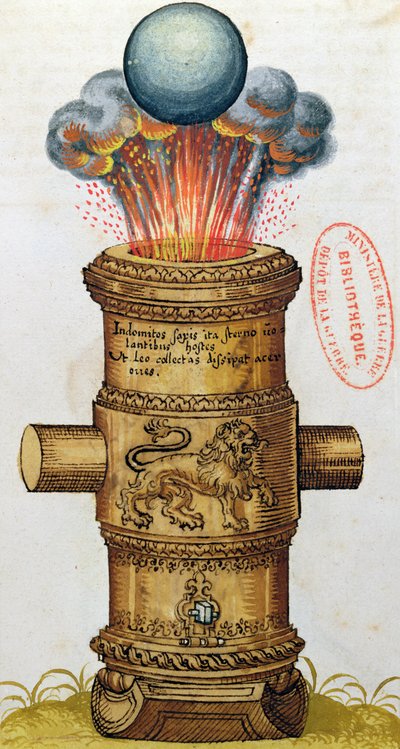 Indomitos saxis ita sterno uo=
lantibus hostes
Ut Leo collectas dissipat acer
oues.
MINISTÈRE DE LA GUERRE
BIBLIOTHÈQUE.
DÉPOT DE LA GUERRE